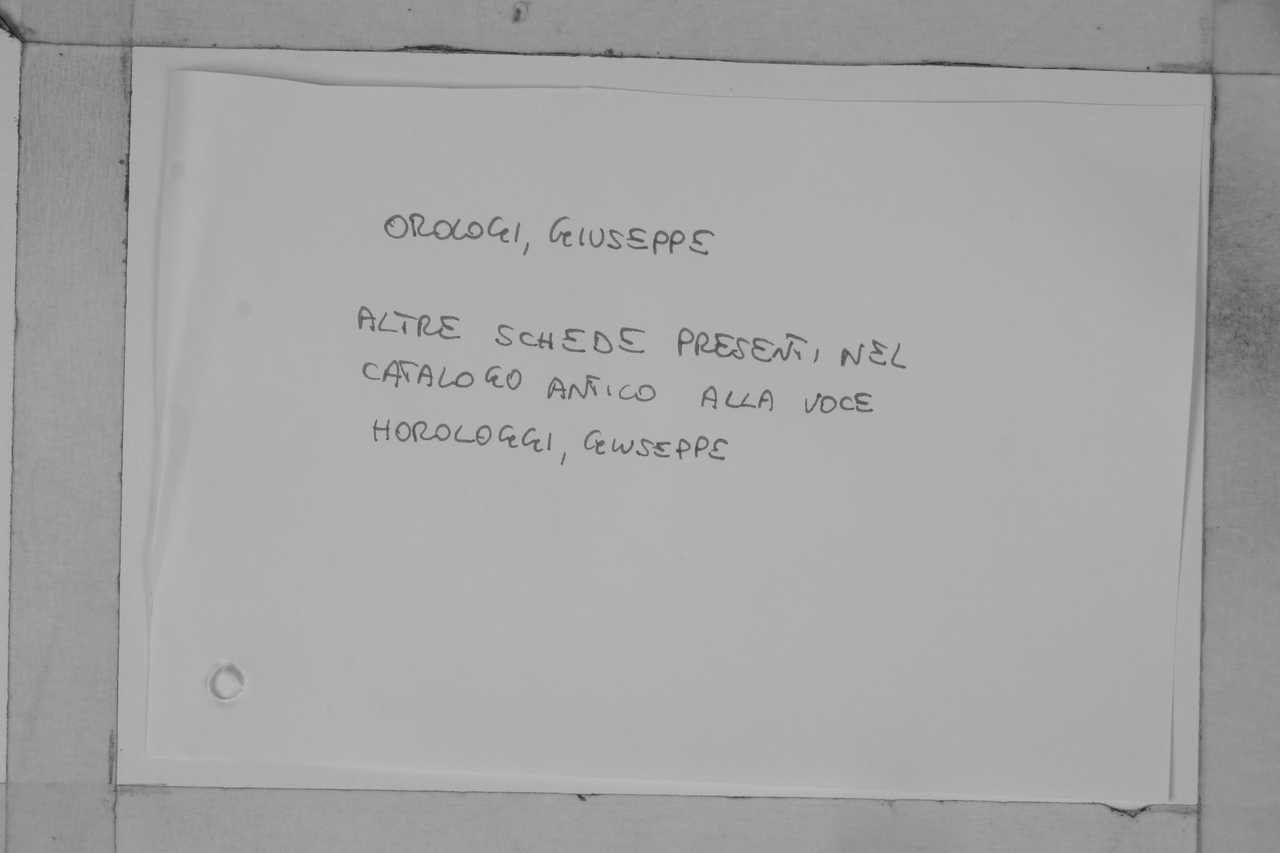 OROLOGI, GIUSEPPE
ALTRE SCHEDE PRESENTI NEL
CATALOGO ANTICO ALLA VOCE
HOROLOGGI, GIUSEPPE